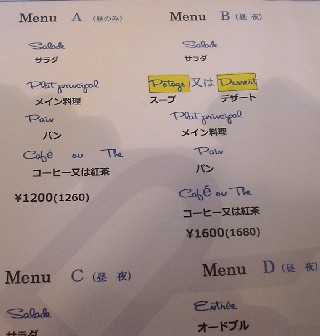 Menu A (昼のみ)
Salade
サラダ
Plat principal
メイン料理
Pain
パン
Café ou The
コーヒー又は紅茶
¥1200(1260)
Menu B (昼 夜)
Salade
サラダ
Potage 又は Dessert
スープ デザート
Plat principal
メイン料理
Pain
パン
Café ou The
コーヒー又は紅茶
¥1600(1680)
Menu C (昼 夜)
Salade
サラダ
Menu D (昼 夜)
Entrée
オードブル